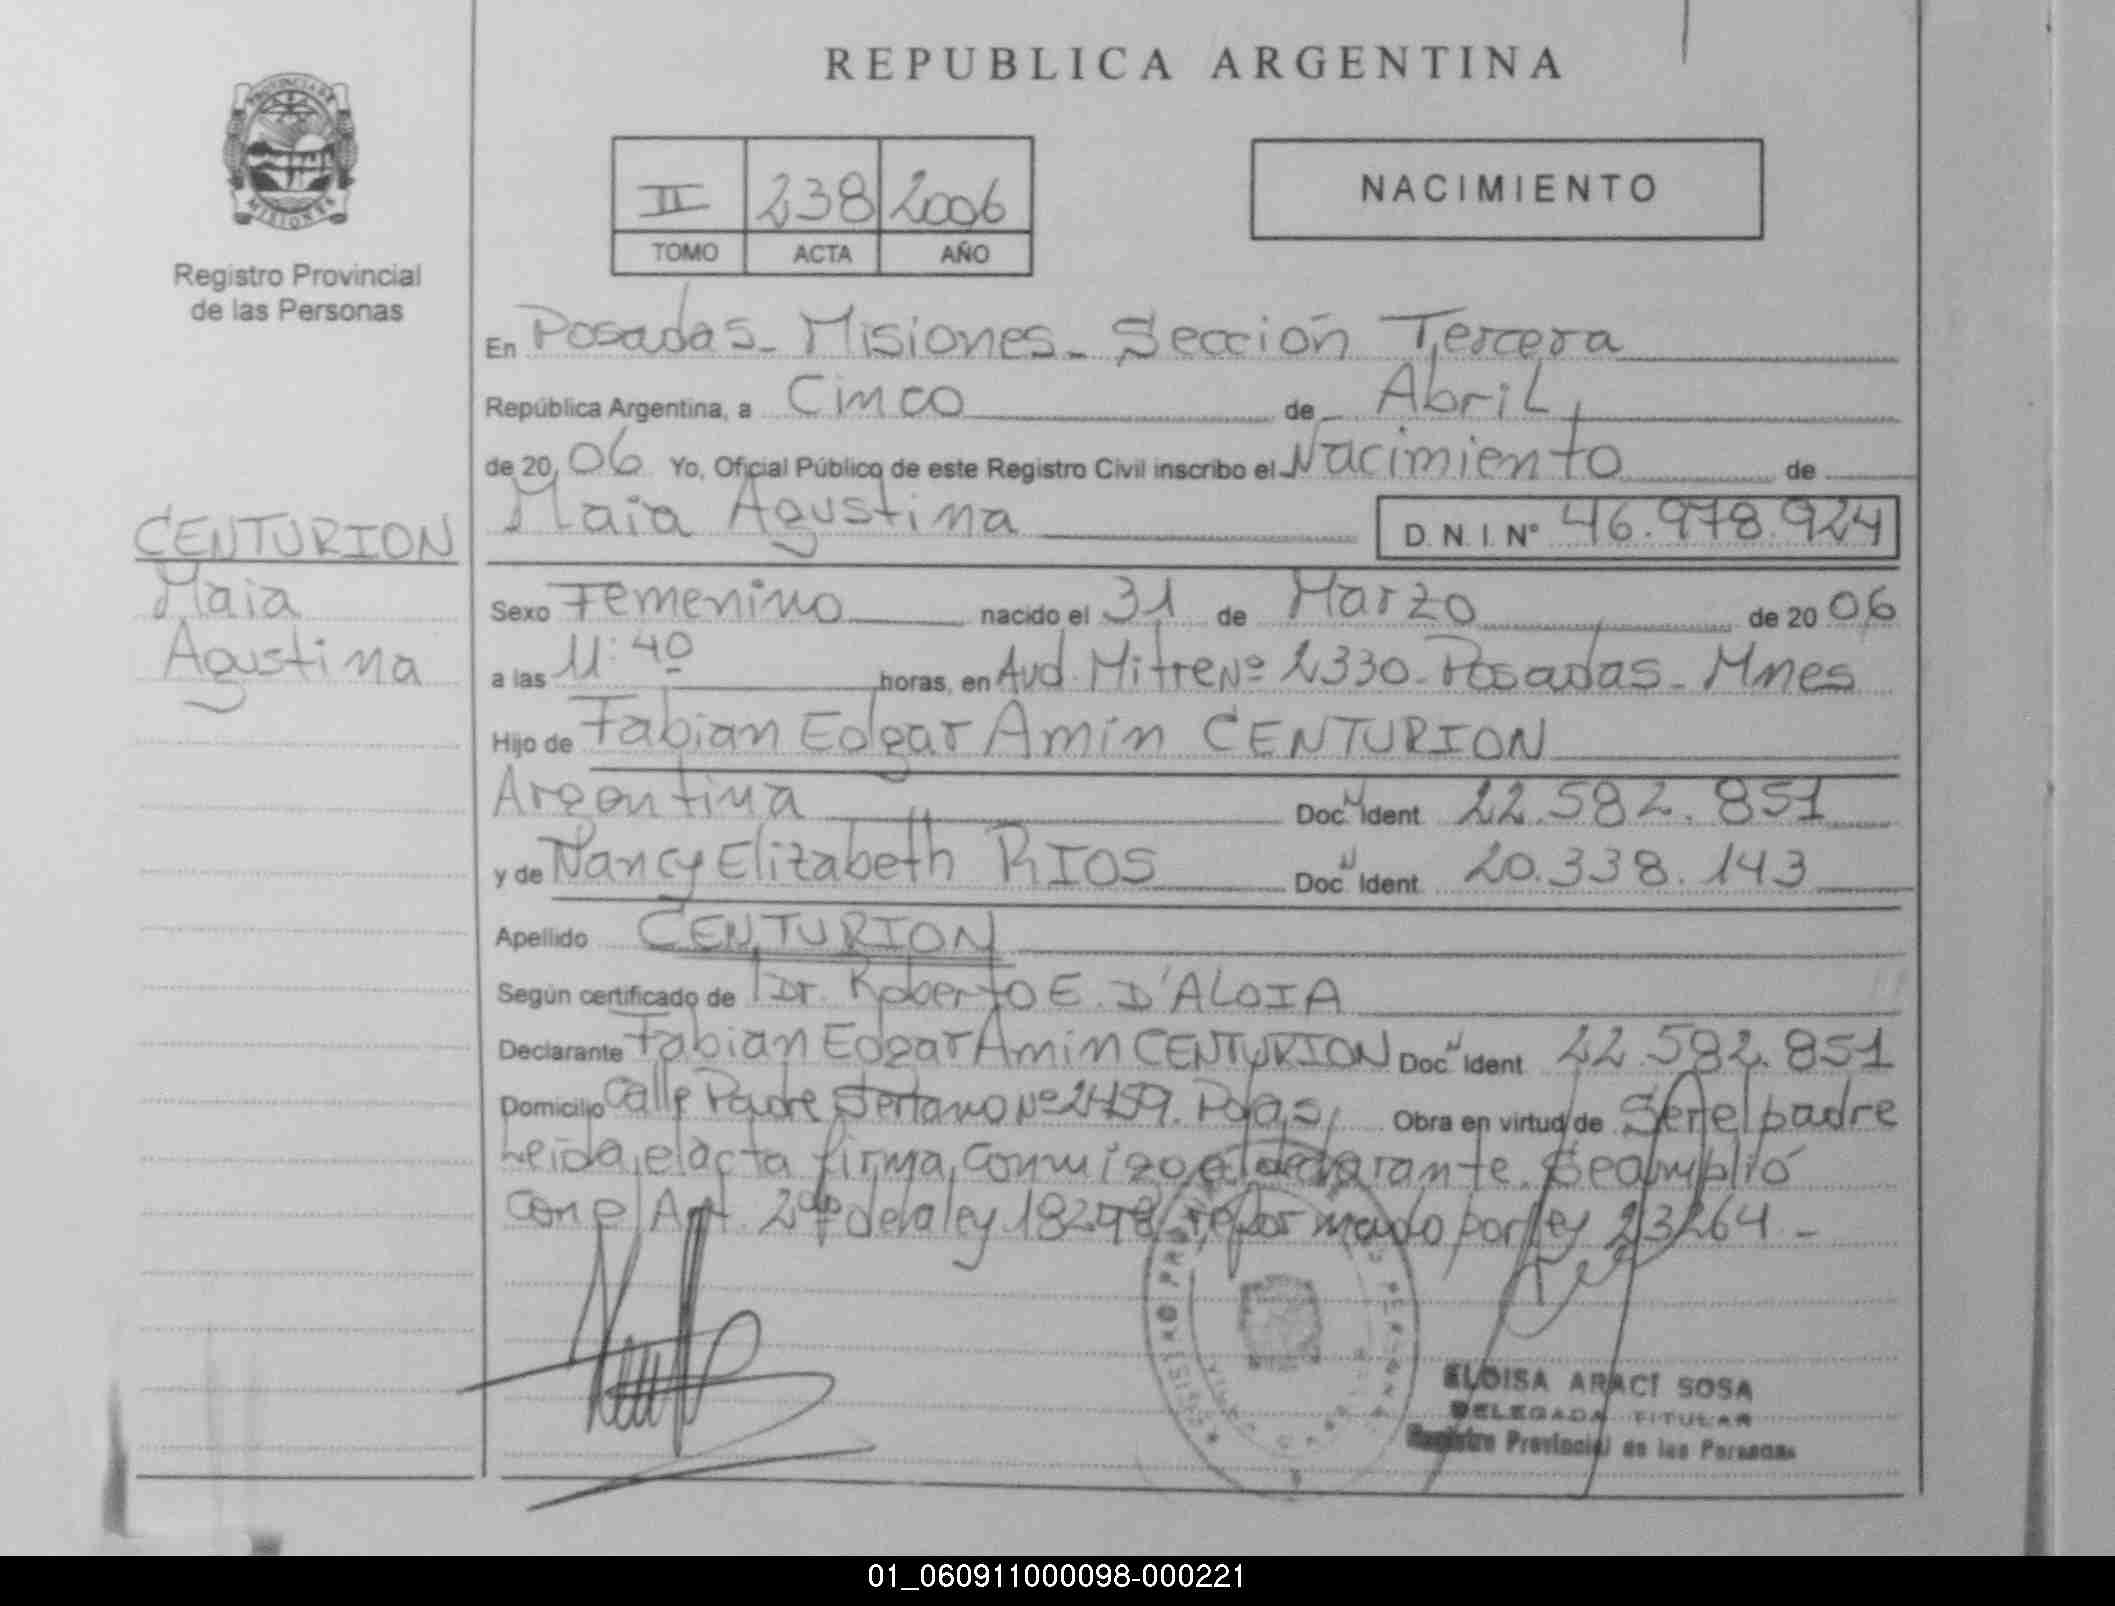 REPUBLICA ARGENTINA
PROVINCIA DE
MISIONES
Registro Provincial
de las Personas
II 238 2006
TOMO ACTA AÑO
NACIMIENTO
En Posadas - Misiones - Sección Tercera
República Argentina, a Cinco de Abril,
de 20 06 Yo, Oficial Público de este Registro Civil inscribo el Nacimiento de
Maia Agustina D.N.I. Nº 46.978.924
CENTURION
Maia
Agustina
Sexo Femenino nacido el 31 de Marzo de 20 06
a las 11:40 horas, en Avd. Mitre Nº 2330 - Posadas - Mnes
Hijo de Fabian Edgar Amin CENTURION
Argentina Doc. N Ident 22.582.851
y de Nancy Elizabeth RIOS Doc. N Ident 20.338.143
Apellido CENTURION
Según certificado de Dr. Roberto E. D'ALOIA
Declarante Fabian Edgar Amin CENTURION Doc. N Ident 22.582.851
Domicilio Calle Padre Nº 2459. Pdas, Obra en virtud de Ser el padre
Leida, el acta firma, conmigo el declarante. Se amplió
con el Art. 2do de la ley 18248 reformado por ley 23264 -
ELOISA ARACÍ SOSA
DELEGADA TITULAR
Registro Provincial de las Personas
01_060911000098-000221